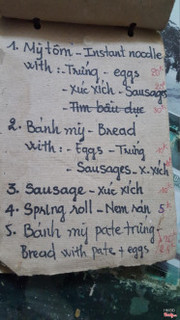 1. Mỳ tôm - Instant noodle
with : - Trứng - eggs
- xúc xích - Sausages
- Tim bầu dục
2. Bánh mỳ - Bread
with : - Eggs - Trứng
- Sausages - x. xích
3. Sausage - xúc xích
4. Spring roll - Nem rán 5
5. Bánh mỳ pate trứng -
Bread with pate + eggs